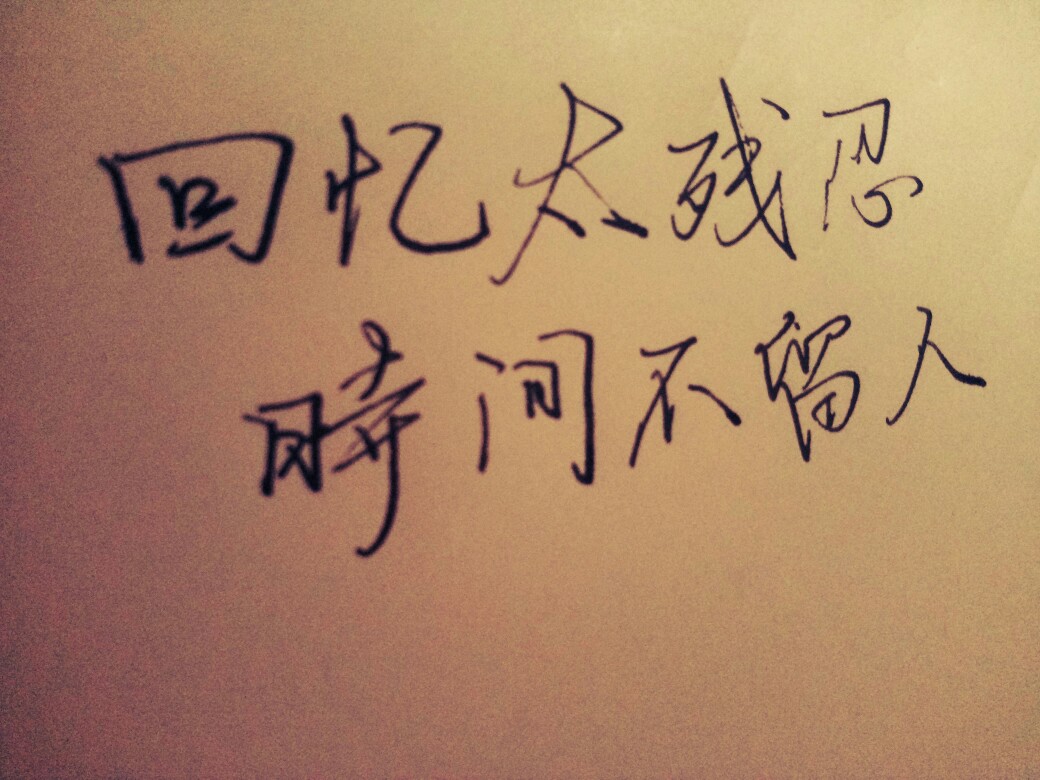 回忆太残忍
時间不留人